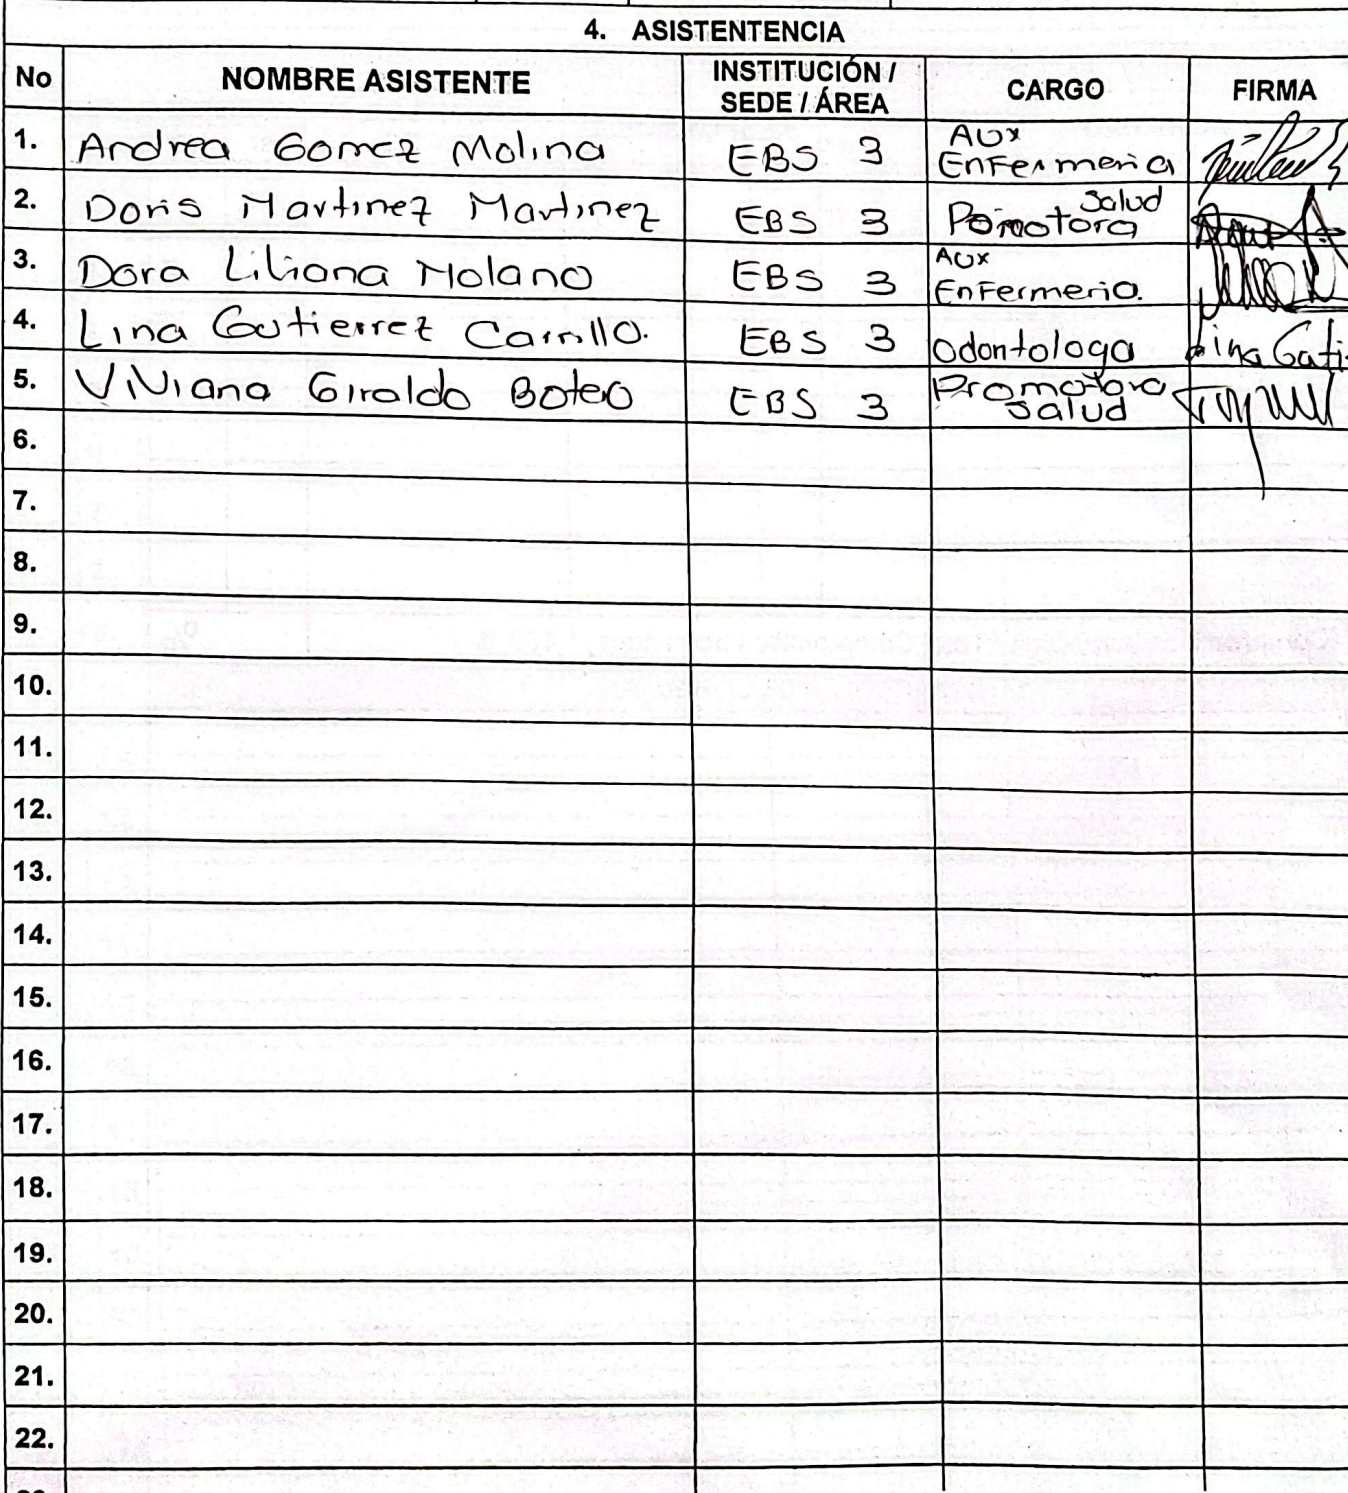 4. ASISTENTENCIA
No NOMBRE ASISTENTE INSTITUCIÓN / SEDE / ÁREA CARGO FIRMA
1. Andrea Gomez Molina EBS 3 AUx Enfermeria
2. Doris Martinez Martinez EBS 3 Pomotora Salud
3. Dora Liliana Molano EBS 3 AUx Enfermeria.
4. Lina Gutierrez Carrillo. EBS 3 Odontologa Lina Guti
5. ViViana Giraldo Botero EBS 3 Promotora Salud
6.
7.
8.
9.
10.
11.
12.
13.
14.
15.
16.
17.
18.
19.
20.
21.
22.